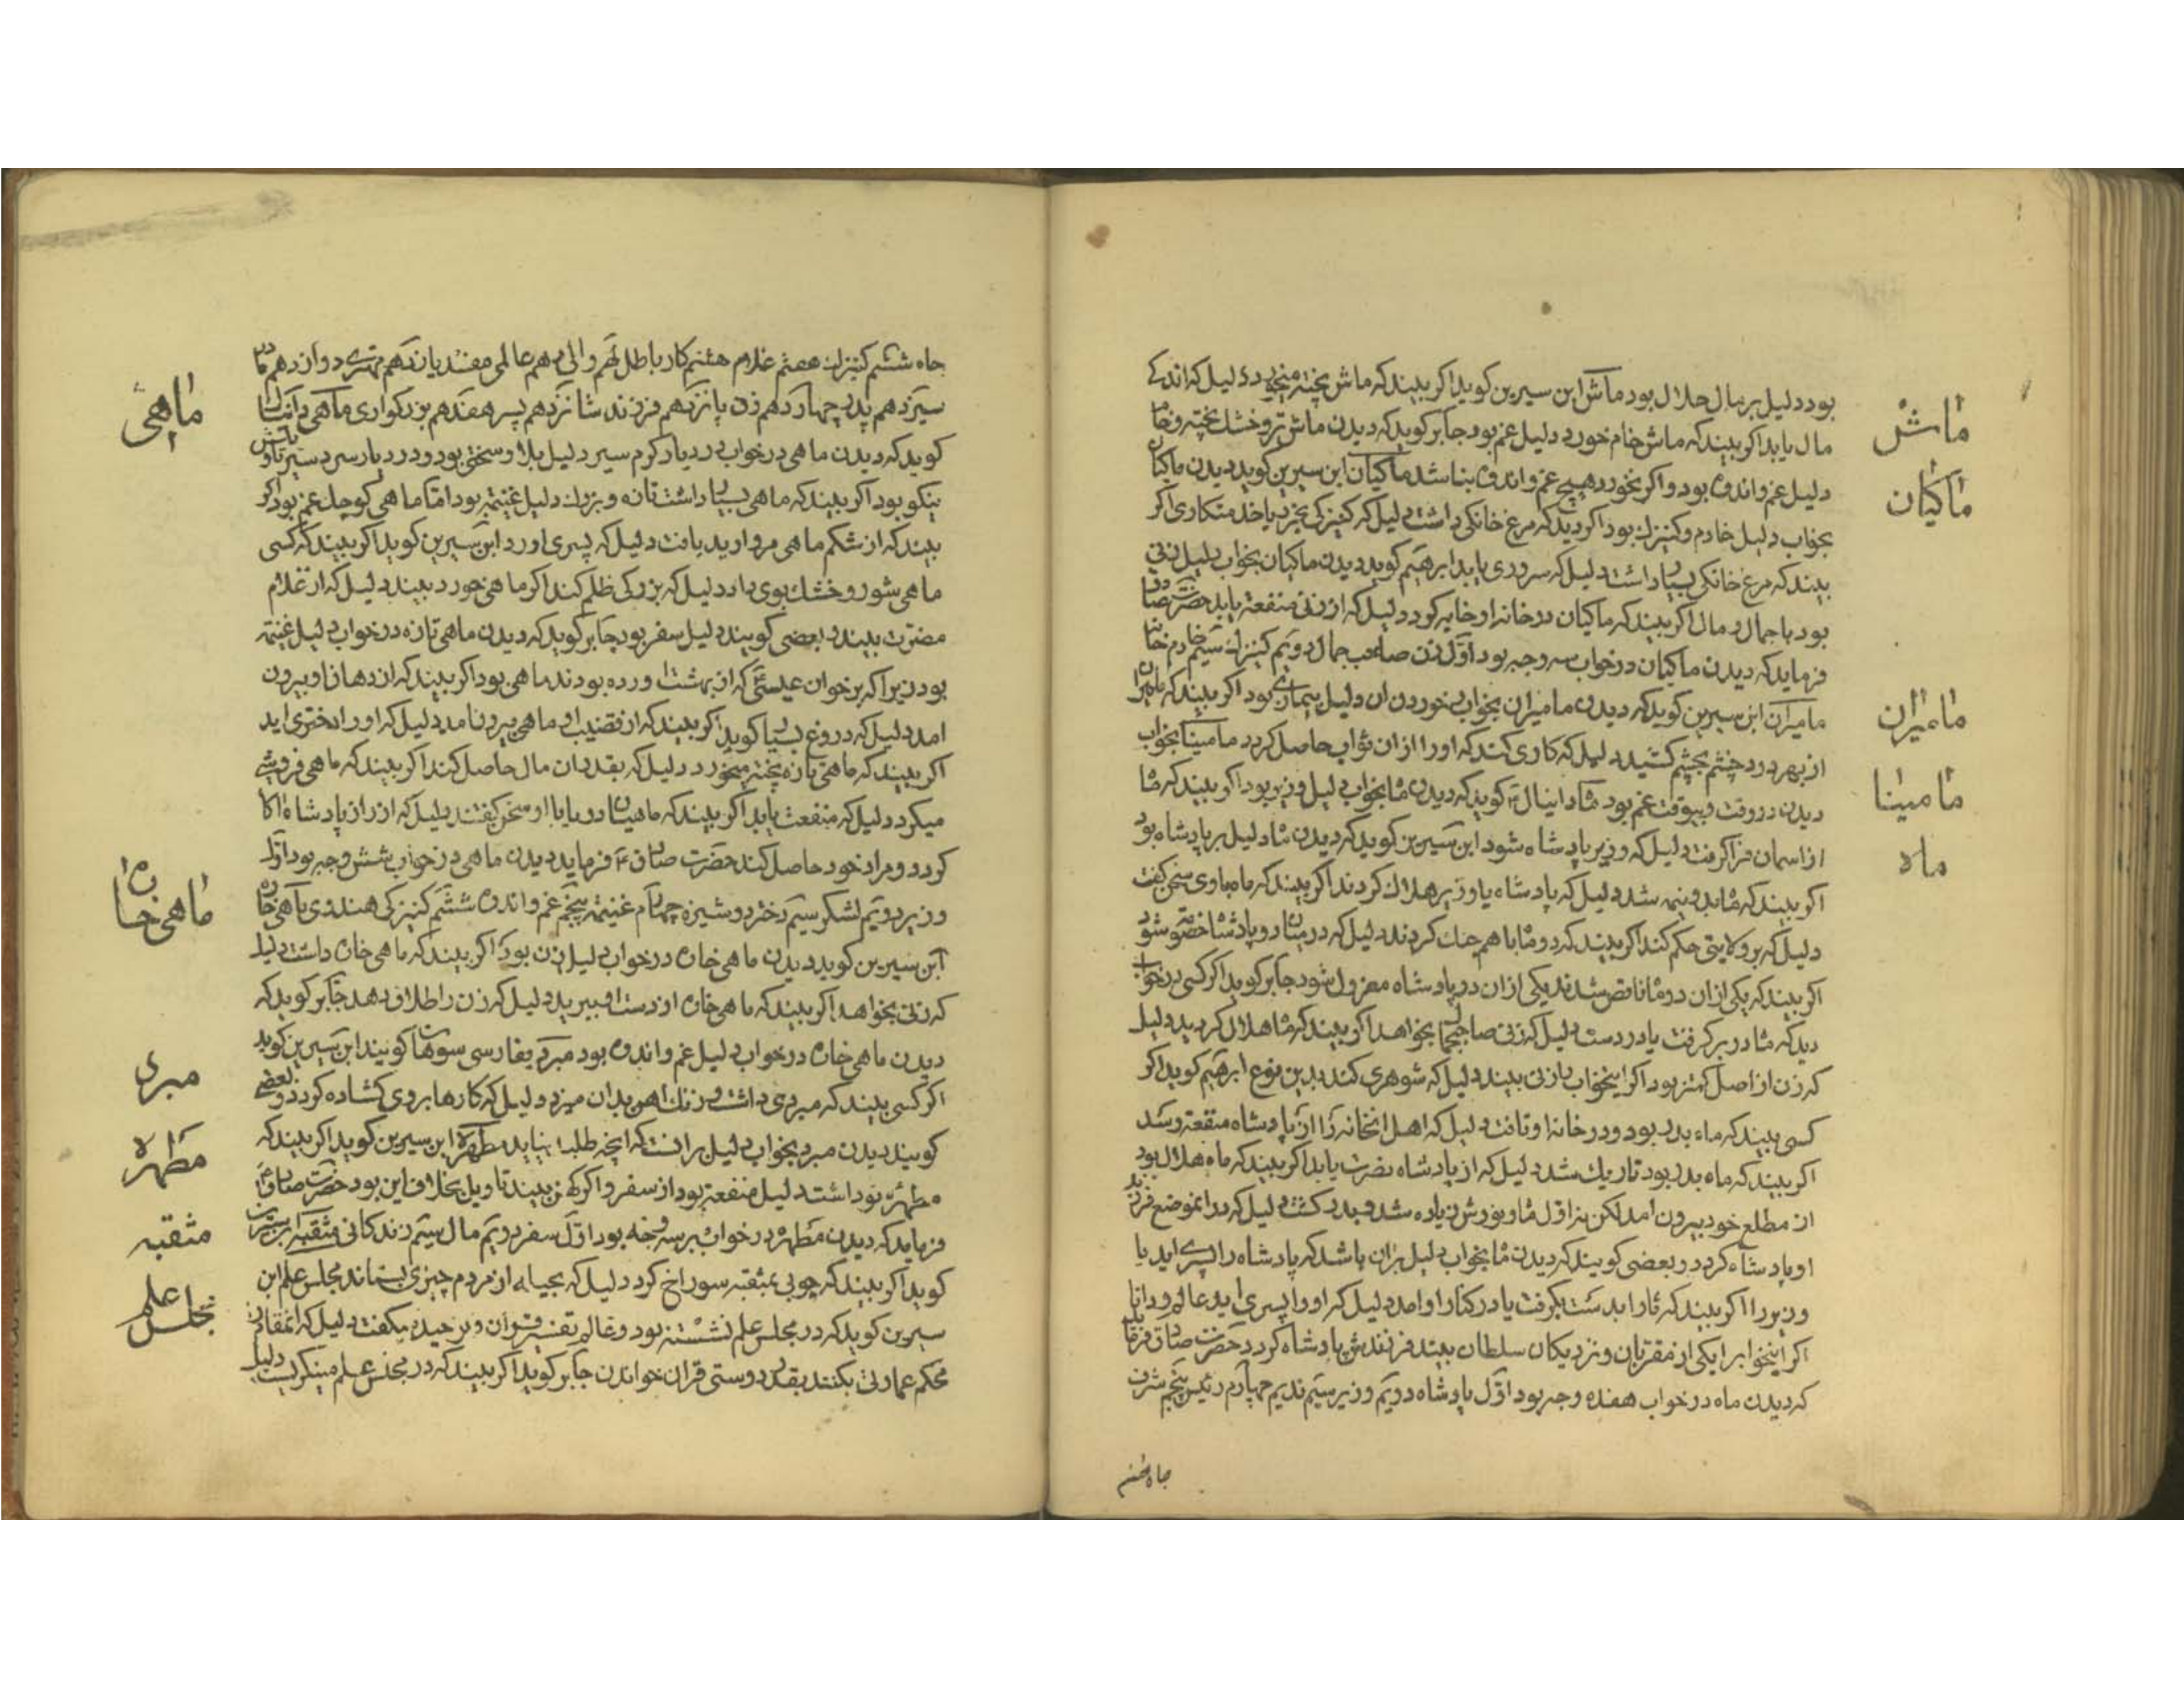 بود دلیل بر مال حلال بود ماش ابن سیرین کوید اکر بیند که ماش پخته میخورد دلیل که اندکے
مال یابد اکر بیند که ماش خام خورد دلیل غم بود جابر کوید که دیدن ماش تر و خشك پخته و خام
دلیل غم و اندوه بود و اکر نخورد هیچ غم و اندوه نباشد ماکیان ابن سیرین کوید دیدن ماکیان
بخواب دلیل خادم و کنیزك بود اکر دید که مرغ خانکی داشت دلیل که کنیزکی بخرد یا خدمتکاری اکر
بیند که مرغ خانکی بسیار داشت دلیل که سروری یابد ابرهیم کوید دیدن ماکیان بخواب دلیل زنی
بود با جمال و مال اکر بیند که ماکیان در خانه او خایه کرد دلیل که از زنی منفعة یابد حضرت صادق
فرماید که دیدن ماکیان در خواب سه وجه بود اول زن صاحب جمال دویم کنیزك سیم خادم خانه
مامیران ابن سیرین کوید که دیدن مامیران بخواب خوردن ان دلیل بیماری بود اکر بیند که مامیران
از بهر درد چشم بچشم کشید دلیل که کاری کند که او را از ان ثواب حاصل کردد مامینا بخواب
دیدن در وقت و بیوقت غم بود ماه دانیال ع کوید که دیدن ماه بخواب دلیل وزیر بود اکر بیند که ماه
از اسمان فرا کرفت دلیل که وزیر پادشاه شود ابن سیرین کوید که دیدن ماه دلیل بر پادشاه بود
اکر بیند که ماه بدو نیمه شد دلیل که پادشاه یا وزیر هلاك کردند اکر بیند که ماه باوی سخن کفت
دلیل که بر ولایتی حکم کند اکر بیند که دو ماه با هم جنك کردند دلیل که در میان دو پادشاه خصومت شود
اکر بیند که یکی از ان دو ماه ناقص شد ندیکی از ان دو پادشاه معزول شود جابر کوید اکر کسی در خواب
دید که ماه در بر کرفت یا در دست دلیل که زنی صاحب جمال بخواهد اکر بیند که ماه هلال کردید دلیل
که زن از اصل کمتر بود اکر اینخواب را زنی بیند دلیل که شوهری کند بدین نوع ابرهیم کوید اکر
کسی بیند که ماه بدر بود و در خانه او تافت دلیل که اهل انخانه را از پادشاه منفعة رسد
اکر بیند که ماه بدر بود تاریك شد دلیل که از پادشاه مضرت یابد اکر بیند که ماه هلال بود
از مطلع خود بیرون امد لکن نه اول ماه و نورش زیاده شد و بدر کشت دلیل که در انموضع فرزند
او پادشاه کردد و بعضی کویند که دیدن ماه بخواب دلیل بران باشد که پادشاه را پسرے اید یا
وزیر را اکر بیند که ماه را بدست بکرفت یا در کنار او امد دلیل که او را پسری اید عالم و دانا
اکر اینخواب را یکی از مقربان و نزدیکان سلطان بیند فرزندش پادشاه کردد حضرت صادق فرماید
که دیدن ماه در خواب هفده وجه بود اول پادشاه دویم وزیر سیم ندیم چهارم رئیس پنجم شرف
ماش
ماکیان
مامیران
مامینا
ماه
جاه ششم
جاه ششم کنیزك هفتم غلام هشتم کار باطل نهم والی دهم عالمی مفسد یازدهم مهتری دوازدهم مادر
سیزدهم پدر چهاردهم زن پانزدهم فرزند شانزدهم پسر هفدهم بزرکواری ماهی دانیال
کوید که دیدن ماهی در خواب در دیار کرم سیر دلیل بلا و سختی بود و در دیار سردسیر تاویلش
نیکو بود اکر بیند که ماهی بسیار داشت تازه و بزرك دلیل غنیمة بود اما ماهی کوچك غم بود اکر
بیند که از شکم ماهی مروارید یافت دلیل که پسری اورد ابن سیرین کوید اکر بیند که کسی
ماهی شور و خشك بوی داد دلیل که بزرکی ظلم کند اکر ماهی خورد بیند دلیل که از غلام
مضرت بیند و بعضی کویند دلیل سفر بود جابر کوید که دیدن ماهی تازه در خواب دلیل غنیمة
بود زیرا که بر خوان عیسی ع که از بهشت اورده بودند ماهی بود اکر بیند که از دهان او بیرون
امد دلیل که دروغ بسیار کوید اکر بیند که از قضیب او ماهی بیرون امد دلیل که او را دختری اید
اکر بیند که ماهی تازه پخته میخورد دلیل که بقدر ان مال حاصل کند اکر بیند که ماهی فروشے
میکرد دلیل که منفعت یابد اکر بیند که ماهیان دریا با او سخن کفتند دلیل که از راز پادشاه اکاه
کردد و مراد خود حاصل کند حضرت صادق ع فرماید دیدن ماهی در خواب شش وجه بود اول
وزیر دویم لشکر سیم دختر دوشیزه چهارم غنیمة پنجم غم و اندوه ششم کنیزکی هندوی ماهی خاره
ابن سیرین کوید دیدن ماهی خاره در خواب دلیل زن بود اکر بیند که ماهی خاره داشت دلیل
که زنی بخواهد اکر بیند که ماهی خاره از دست او بپرید دلیل که زن را طلاق دهد جابر کوید که
دیدن ماهی خاره در خواب دلیل غم و اندوه بود مبرد بفارسی سوهان کویند ابن سیرین کوید
اکر کسی بیند که مبردی داشت و زنك اهن بدان میزد دلیل که کارها بر وی کشاده کردد و بعضی
کویند دیدن مبرد بخواب دلیل برانست که انچه طلبد بیابد مطهره ابن سیرین کوید اکر بیند که
مطهره نو داشت دلیل منفعة بود از سفر و اکر کهن بیند تاویل بخلاف این بود حضرت صادق ع
فرماید که دیدن مطهره در خواب بر سه وجه بود اول سفر دویم مال سیم زندکانی مثقبه ابن سیرین
کوید اکر بیند که چوبی بمثقبه سوراخ کرد دلیل که بحیله از مردم چیزی بستاند مجلس علم ابن
سیرین کوید که در مجلس علم نشسته بود و عالم تفسیر قران و توحید میکفت دلیل که انمقام
محکم عمارتی بکنند بقدر دوستی قران خواندن جابر کوید اکر بیند که در مجلس علم میکریست دلیل
ماهی
ماهی خاره
مبرد
مطهره
مثقبه
مجلس علم